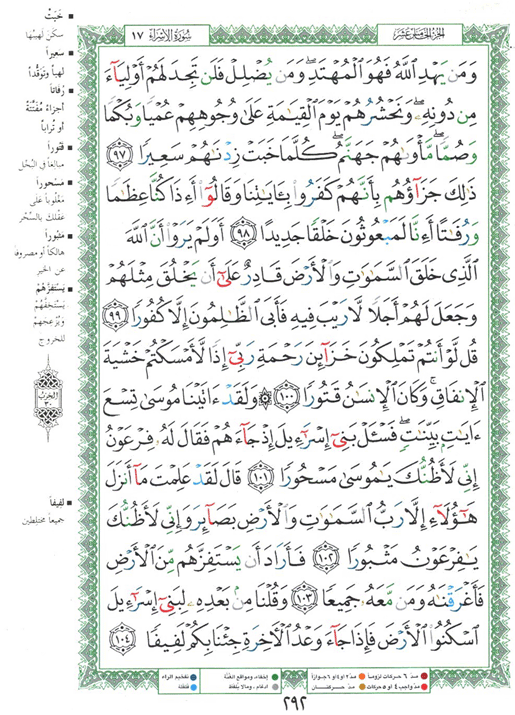 الجزء الخامس عشر
سورة الإسراء ١٧
وَمَن يَهْدِ اللَّهُ فَهُوَ الْمُهْتَدِ وَمَن يُضْلِلْ فَلَن تَجِدَ لَهُمْ أَوْلِيَاءَ
مِن دُونِهِ وَنَحْشُرُهُمْ يَوْمَ الْقِيَامَةِ عَلَى وُجُوهِهِمْ عُمْيًا وَبُكْمًا
وَصُمًّا مَّأْوَاهُمْ جَهَنَّمُ كُلَّمَا خَبَتْ زِدْنَاهُمْ سَعِيرًا ٩٧
ذَلِكَ جَزَاؤُهُم بِأَنَّهُمْ كَفَرُوا بِآيَاتِنَا وَقَالُوا أَءِذَا كُنَّا عِظَامًا
وَرُفَاتًا أَءِنَّا لَمَبْعُوثُونَ خَلْقًا جَدِيدًا ٩٨ أَوَلَمْ يَرَوْا أَنَّ اللَّهَ
الَّذِي خَلَقَ السَّمَاوَاتِ وَالْأَرْضَ قَادِرٌ عَلَى أَن يَخْلُقَ مِثْلَهُمْ
وَجَعَلَ لَهُمْ أَجَلًا لَّا رَيْبَ فِيهِ فَأَبَى الظَّالِمُونَ إِلَّا كُفُورًا ٩٩
قُل لَّوْ أَنتُمْ تَمْلِكُونَ خَزَائِنَ رَحْمَةِ رَبِّي إِذًا لَّأَمْسَكْتُمْ خَشْيَةَ
الْإِنفَاقِ وَكَانَ الْإِنسَانُ قَتُورًا ١٠٠ ۞ وَلَقَدْ آتَيْنَا مُوسَى تِسْعَ
آيَاتٍ بَيِّنَاتٍ فَسْئَلْ بَنِي إِسْرَائِيلَ إِذْ جَاءَهُمْ فَقَالَ لَهُ فِرْعَوْنُ
إِنِّي لَأَظُنُّكَ يَا مُوسَى مَسْحُورًا ١٠١ قَالَ لَقَدْ عَلِمْتَ مَا أَنزَلَ
هَؤُلَاءِ إِلَّا رَبُّ السَّمَاوَاتِ وَالْأَرْضِ بَصَائِرَ وَإِنِّي لَأَظُنُّكَ
يَا فِرْعَوْنُ مَثْبُورًا ١٠٢ فَأَرَادَ أَن يَسْتَفِزَّهُم مِّنَ الْأَرْضِ
فَأَغْرَقْنَاهُ وَمَن مَّعَهُ جَمِيعًا ١٠٣ وَقُلْنَا مِن بَعْدِهِ لِبَنِي إِسْرَائِيلَ
اسْكُنُوا الْأَرْضَ فَإِذَا جَاءَ وَعْدُ الْآخِرَةِ جِئْنَا بِكُمْ لَفِيفًا ١٠٤
خَبَتْ
سكن لهيبُها
سَعِيراً
لهباً وتوقُّداً
رُفَاتاً
أجزاءً مُفَتَّتَة
أو تُراباً
قتوراً
مبالغاً في البُخل
مسحوراً
مغلوباً على
عقلك بالسِّحْر
مثبوراً
هالكاً أو مصروفاً
عن الخير
يستفزَّهُمْ
يستخفَّهُم
ويُزعجهم
للخروج
الحزب
٣٠
لفيفاً
جميعاً مختلطين
مدّ ٦ حركات لزوماً
مدّ ٢ أو ٤ أو ٦ جوازاً
إخفاء، ومواقع الغُنَّة
تفخيم الراء
مدّ واجب ٤ أو ٥ حركات
مدّ حركتان
إدغام، وما لا يُلفَظ
قلقلة
٢٩٢